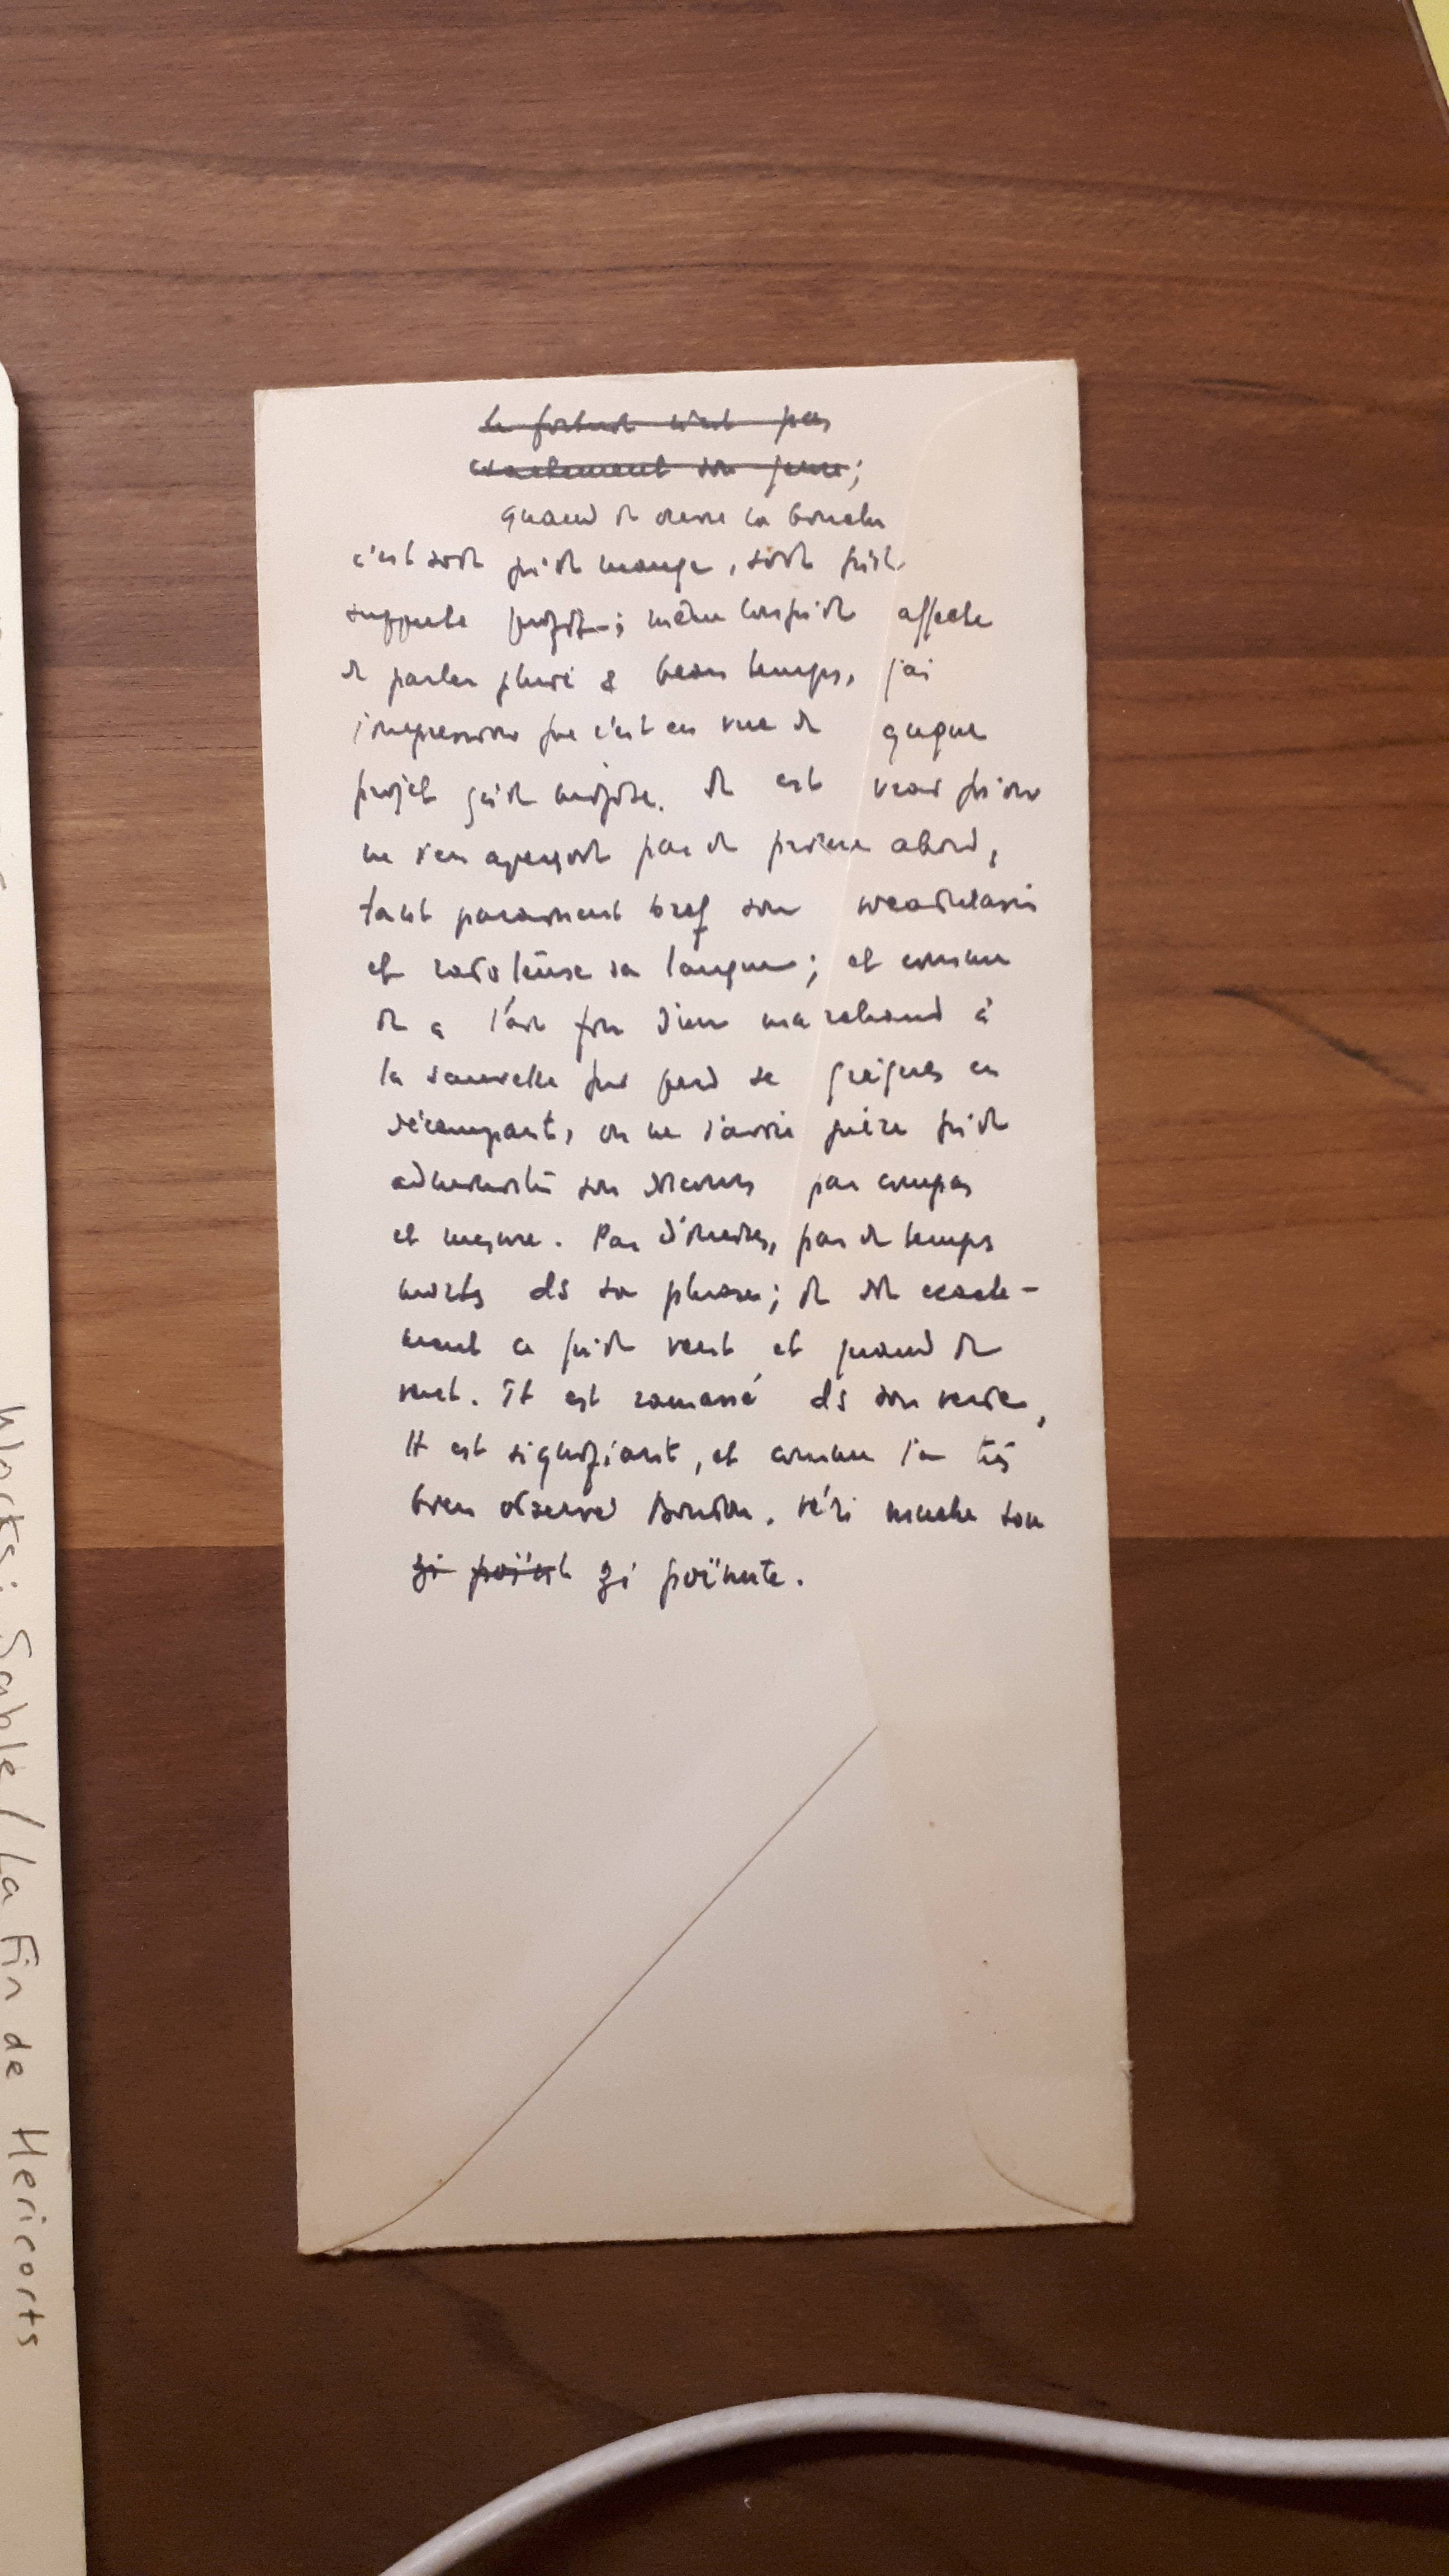 le fortuit n'est pas
exactement son genre;
quand il ouvre la bouche
c'est soit qu'il mange, soit qu'il
suppute profit; même lorsqu'il affecte
de parler pluie & beau temps, j'ai
l'impression que c'est en vue de quelque
projet qu'il mijote. Il est vrai qu'on
ne s'en aperçoit pas de prime abord,
tant paraissent bref son vocabulaire
et radoteuse sa langue; et comme
il a l'air d'un marchand à
la sauvette qui perd se grègues en
décampant, on ne s'avise guère qu'il
administre son discours par compas
et mesure. Pas d'inutiles, pas de temps
morts ds sa phrase; il dit exacte-
ment ce qu'il veut et quand il
veut. Il est ramassé ds son verbe,
Il est signifiant, et comme l'a très
bien observé, muche son
gi gi
Sable / La Fin de Hericorts